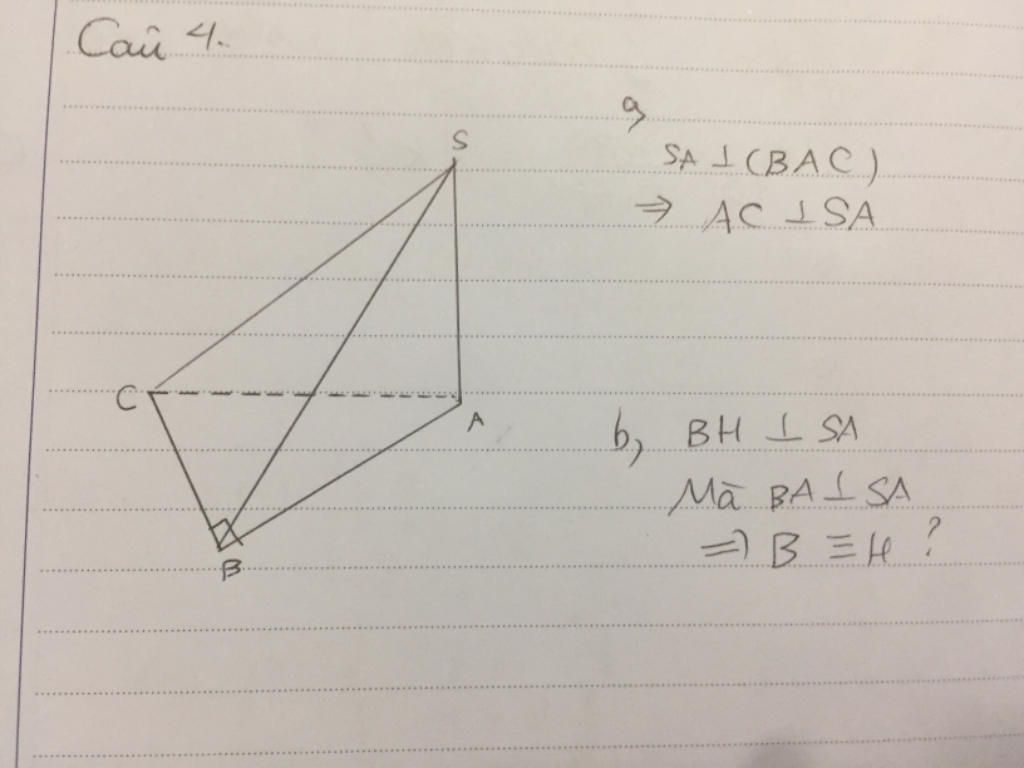 Câu 4.
S
C
A
B
a,
SA ⊥ (BAC)
⇒ AC ⊥ SA
b, BH ⊥ SA
Mà BA ⊥ SA
⇒ B ≡ H ?